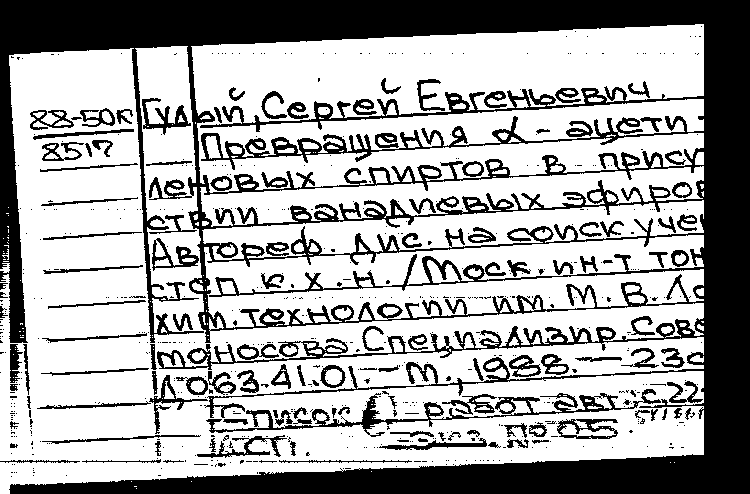 88-50к
8517
Гудый, Сергей Евгеньевич.
Превращения α - ацети-
леновых спиртов в прису
ствии ванадиевых эфиров
Автореф. дис. на соиск. учен
степ. к. х. н. / Моск. ин-т тон
хим. технологии им. М. В. Ло
моносова. Специализир. Сове
Д 063.41.01. - М., 1988. - 23с
Список работ авт.: с. 22-
ДСП. Экз. № 05.